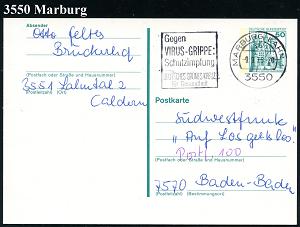 3550 Marburg
Absender
Otto Feltes
Brückerhof
(Postfach oder Straße und Hausnummer)
3551 Lahntal 2
(Postleitzahl) (Ort)
Caldern
Gegen
VIRUS-GRIPPE:
Schutzimpfung
DEUTSCHES GRÜNES KREUZ
MARBURG
3550
50
Postkarte
Südwestfunk
"Auf Los geht's los"
Postf. 100
(Postfach oder Straße und Hausnummer)
7570 Baden-Baden
(Postleitzahl) (Bestimmungsort)